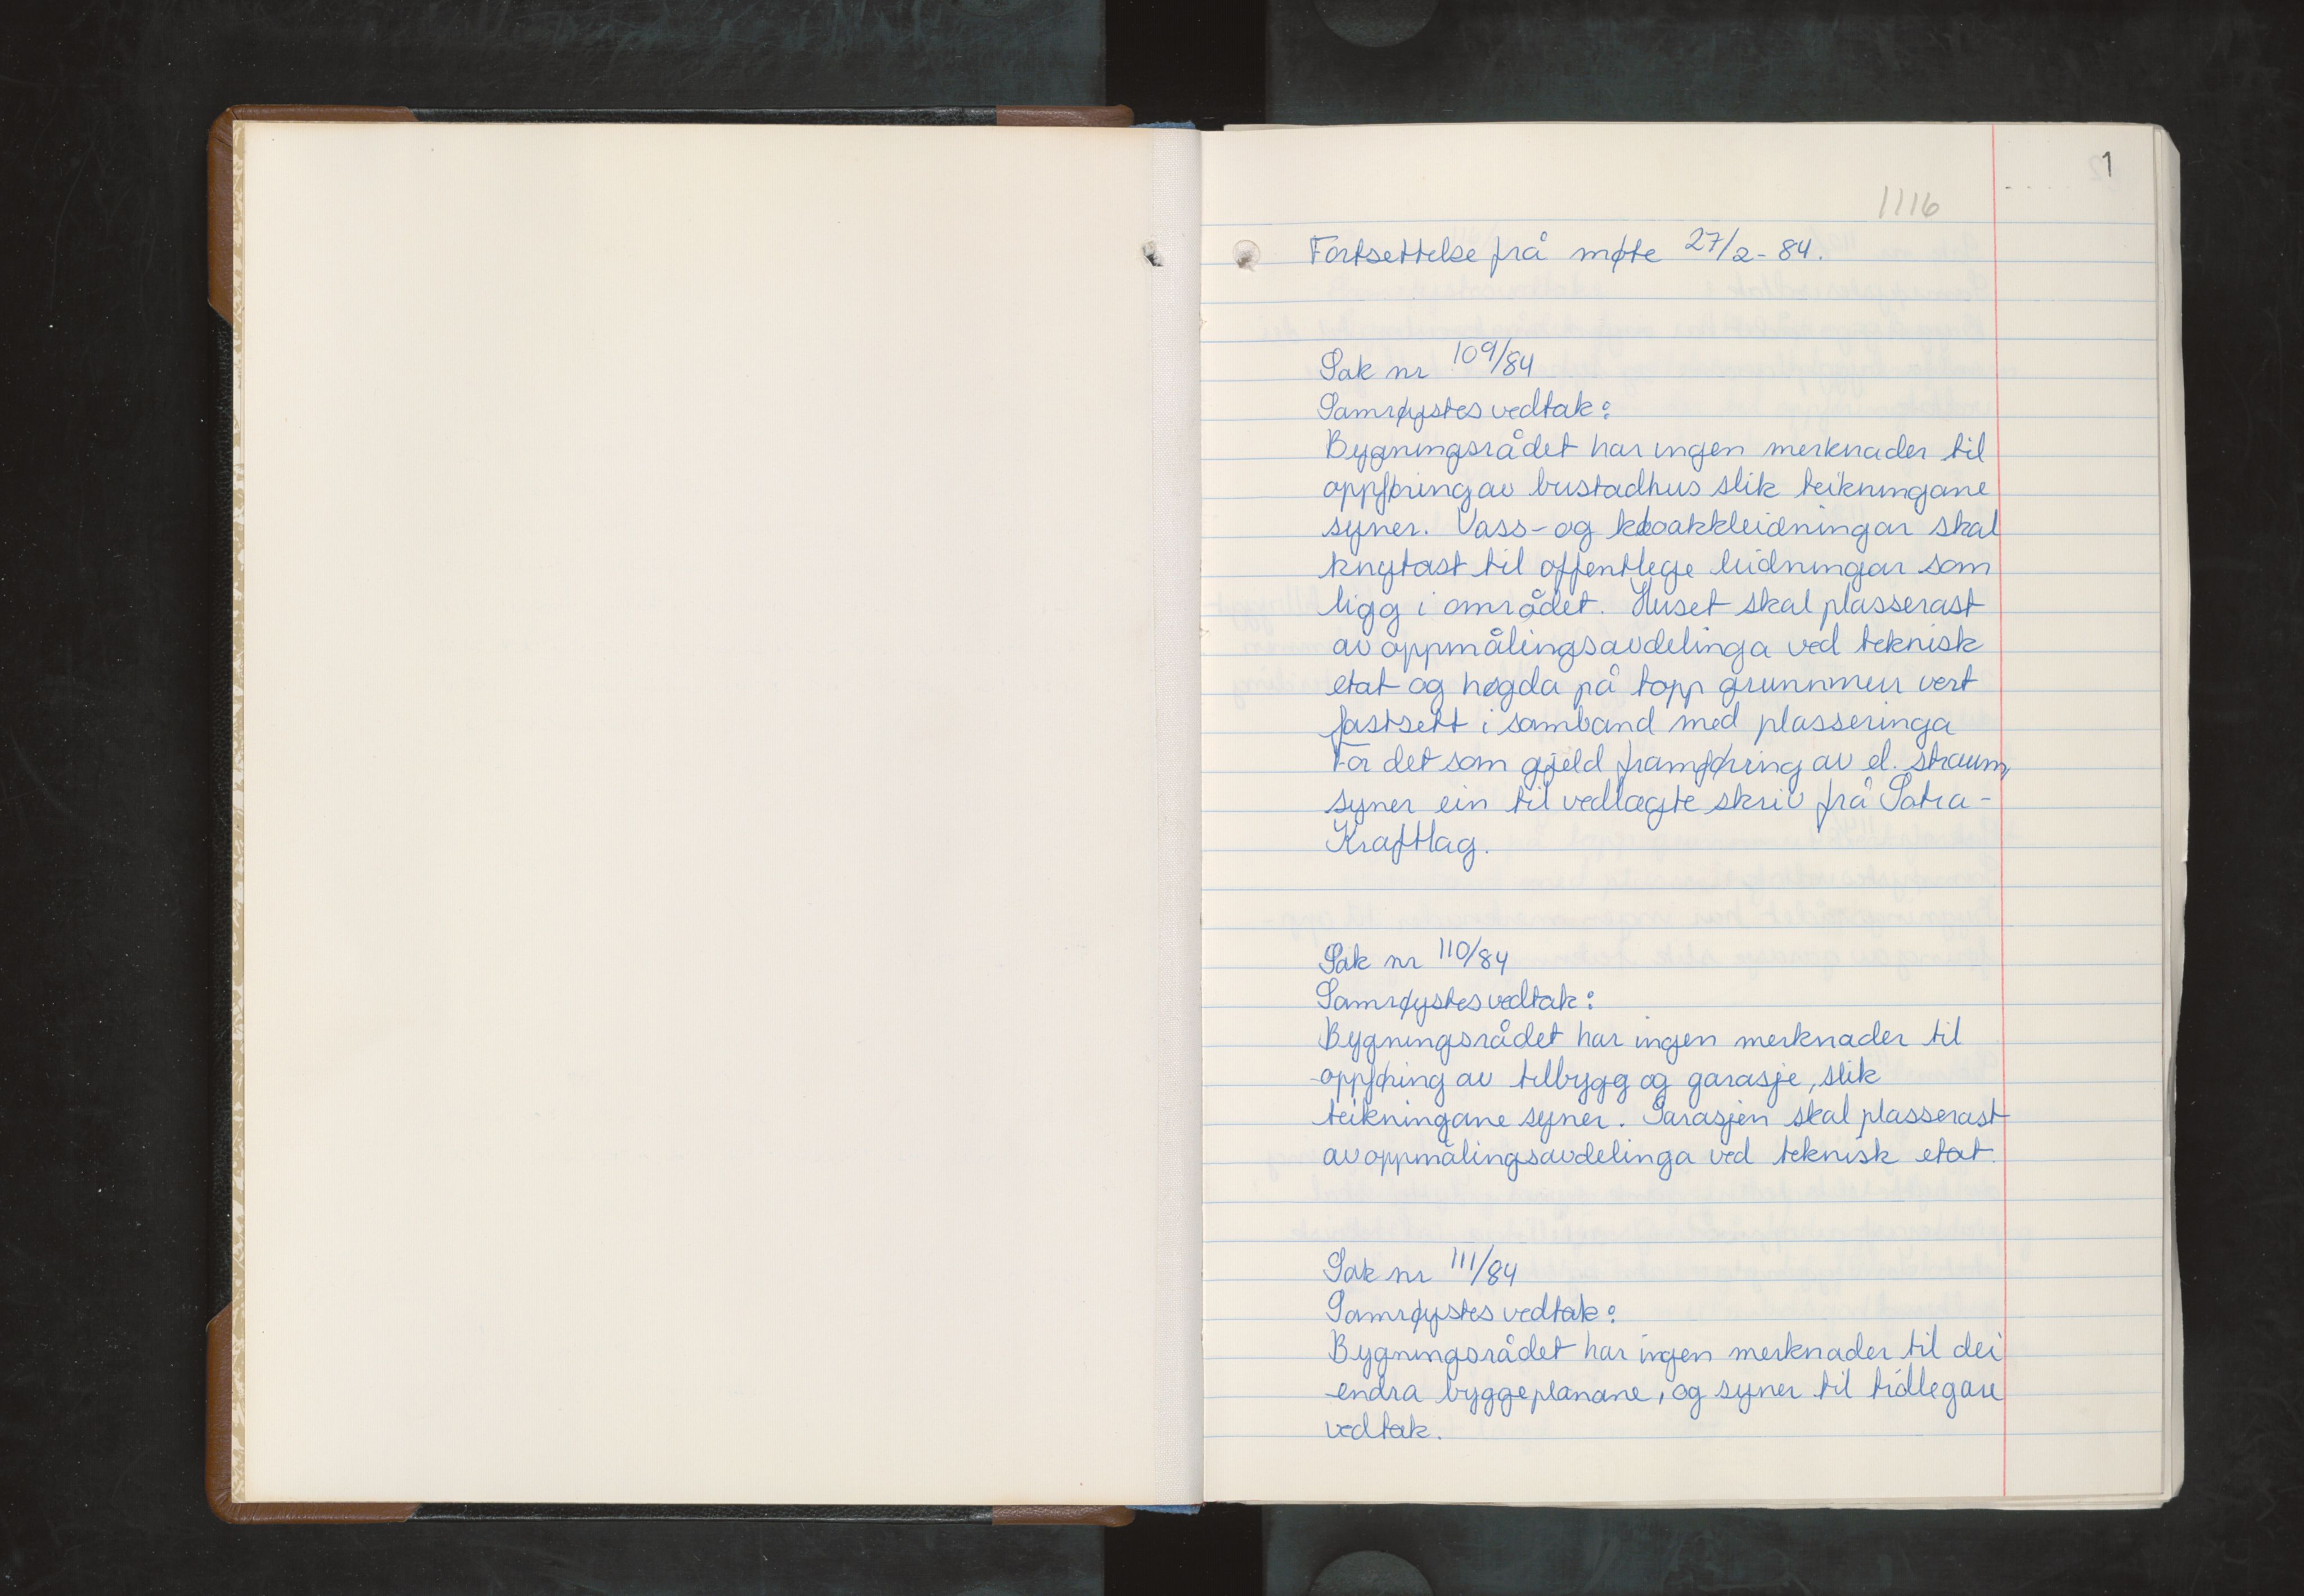 1
1116
Fortsettelse frå møte 27/2-84.
Sak nr 109/84
Samrøystes vedtak:
Bygningsrådet har ingen merknader til
oppføring av bustadhus slik teikningane
syner. Vass- og kloakkleidningar skal
knytast til offentlege leidningar som
ligg i området. Huset skal plasserast
av oppmålingsavdelinga ved teknisk
etat og høgda på topp grunnmur vert
fastsett i samband med plasseringa
For det som gjeld framføring av el. straum,
syner ein til vedlagte skriv frå Sotra-
Kraftlag.
Sak nr 110/84
Samrøystes vedtak:
Bygningsrådet har ingen merknader til
oppføring av tilbygg og garasje, slik
teikningane syner. Garasjen skal plasserast
av oppmålingsavdelinga ved teknisk etat.
Sak nr 111/84
Samrøystes vedtak:
Bygningsrådet har ingen merknader til dei
endra byggeplanane, og syner til tidlegare
vedtak.